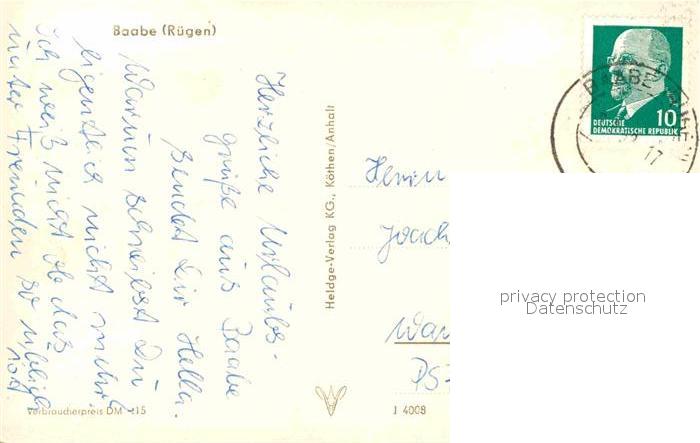 Baabe (Rügen)
Herzliche Urlaubs-
grüße aus Baabe
sendet Dir Hella.
Warum schreibst Du
eigentlich nicht mehr?
Ich weiß nicht ob das
unter Fremden so üblich
ist
Verbraucherpreis DM -,15
Heldge-Verlag KG., Köthen/Anhalt
J 4008
Herrn
Joach
War
PS-
BAABE
17
10
DEUTSCHE
DEMOKRATISCHE REPUBLIK
privacy protection
Datenschutz